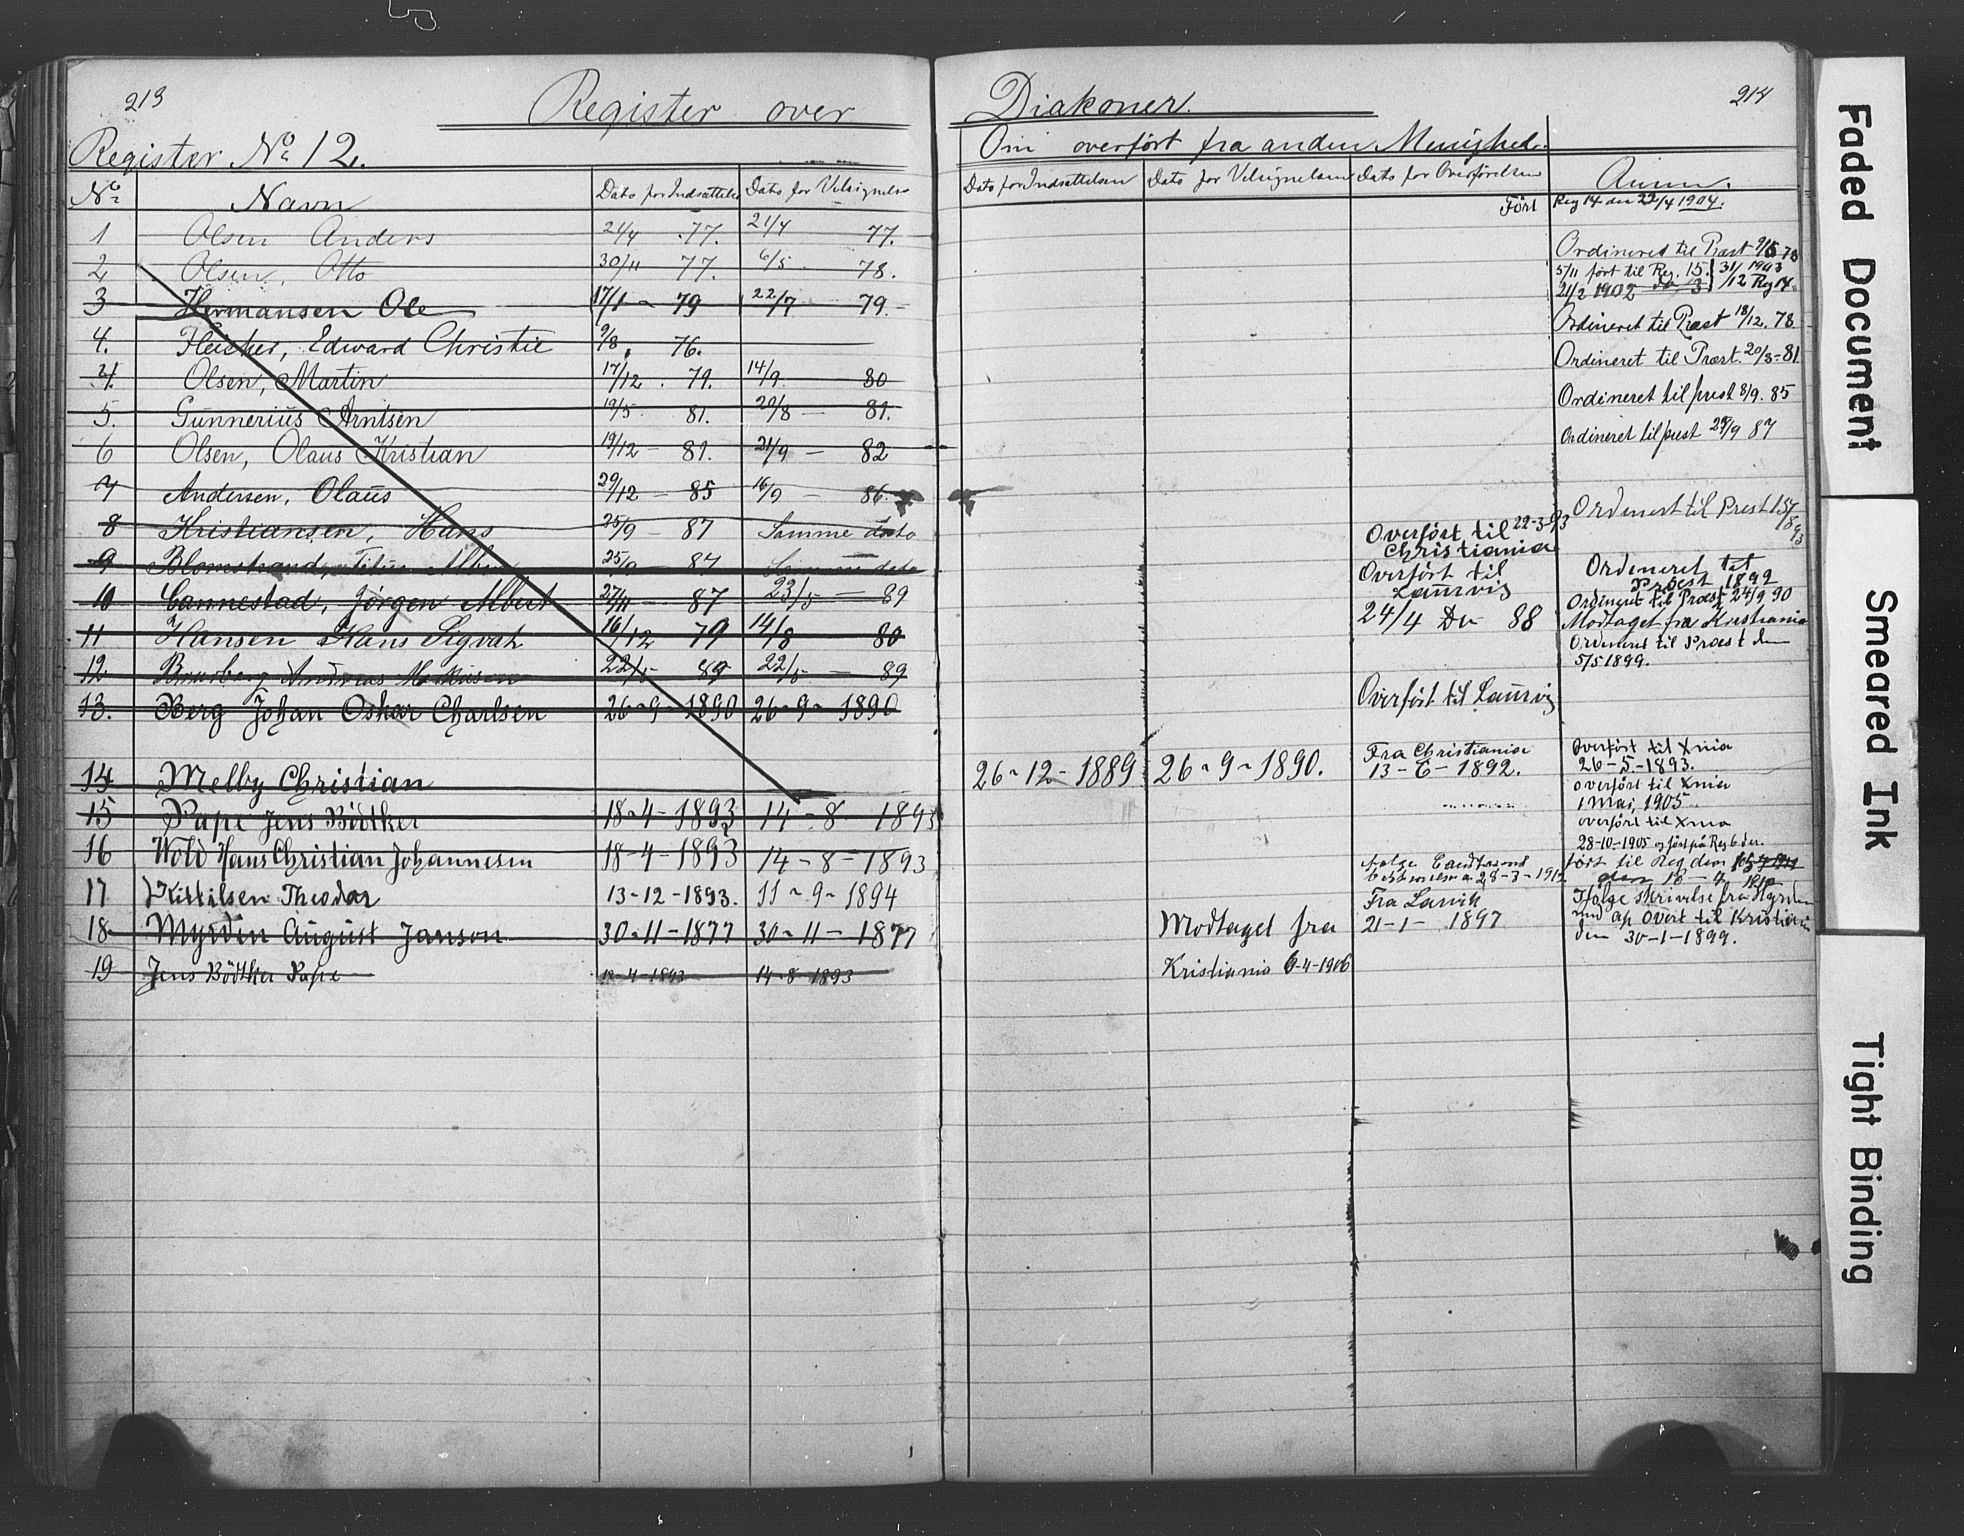 213
Register over Diakoner.
214
Register No 12.
Om overført fra anden Menighed.
No Navn Dato for Indsættelse Dato for Velsignelse Dato for Indsættelsen Dato for Velsignelsen Dato for Overførelsen Anm.
Ført Reg 14 den 22/4 1904.
1 Olsen Anders 24/4 77. 21/4 77.
Ordineret til Præst
2 Olsen, Otto 30/11 77. 6/5 78.
5/11 ført til Reg. 15. 31/ 1903
21/2 1902 do 3 /12 Reg 14.
3 Hermansen Ole 17/1 - 79 22/7 - 79.
Ordineret til Præst 18/12. 78
4. Fleischer, Edward Christie 9/8. 76.
Ordineret til Præst. 20/3-81.
4. Olsen, Martin 17/12. 79. 14/9. 80
Ordineret til prest 3/9. 85
5. Gunnerius Arntsen 19/5. 81. 20/8 - 81.
Ordineret til prest 25/9 87
6 Olsen, Olaus Kristian 19/12 - 81. 21/9 - 82
7 Andersen, Olaüs 29/12 - 85 16/9 - 86.
Ordinert til Prest 15/
8 Kristiansen, Hans 25/9 - 87 Samme dato
Overført til 22-3-93
Christiania
9 Blomstrand, Titus Albin 25/9 - 87 Samme dato
Overført til
Laurvig
Ordineret til
Præst 1892
10 Cannestad, Jørgen Albert 27/11 - 87 23/5 - 89
Ordineret til Præst 24/9 90
11 Hansen Hans Sigvah 16/12 79 14/8 80
24/4 Do 88
Modtaget fra Kristiania
Ordineret til Præst den
5/5 1899.
12 Andreas 22/5 89 22/5 - 89
13. Berg Johan Oskar Charlsen 26-9-1890 26-9-1890
Overført til Laurvig
14 Melby Christian 26-12-1889 26-9-1890.
Fra Christiania
13-6-1892.
Overført til Xnia
26-5-1893.
15 Pape Jens Bödtker 18-4-1893 14-8-1893
overført til Xnia
1 Mai, 1905
overført til Xnia
28-10-1905 og ført på Reg 6 der.
16 Wold Hans Christian Johannesen 18-4-1893 14-8-1893
28-3-1912
ført til Reg den
den 18-4 1912
17 Kittilsen Theodor 13-12-1893. 11-9-1894
Fra Larvik
21-1-1897
Ifølge skrivelse fra Myrdin
18 Myrdin August Janson 30-11-1877 30-11-1877
Modtaget fra
Overt til Kristiania
den 30-1-1899.
19 Jens Bödtker Pape 18-4-1893 14-8-1893
Kristiania 6-4-1906
Faded Document
Smeared Ink
Tight Binding